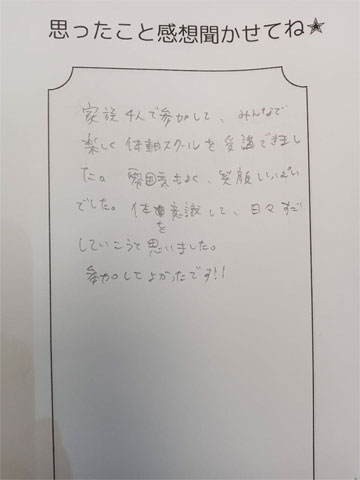 思ったこと感想聞かせてね★
家族4人で参加して、みんなで
楽しく体軸スクールを受講できまし
た。雰囲気もよく、笑顔いっぱい
でした。体軸を意識して、日々すご
していこうと思いました。
参加してよかったです!!